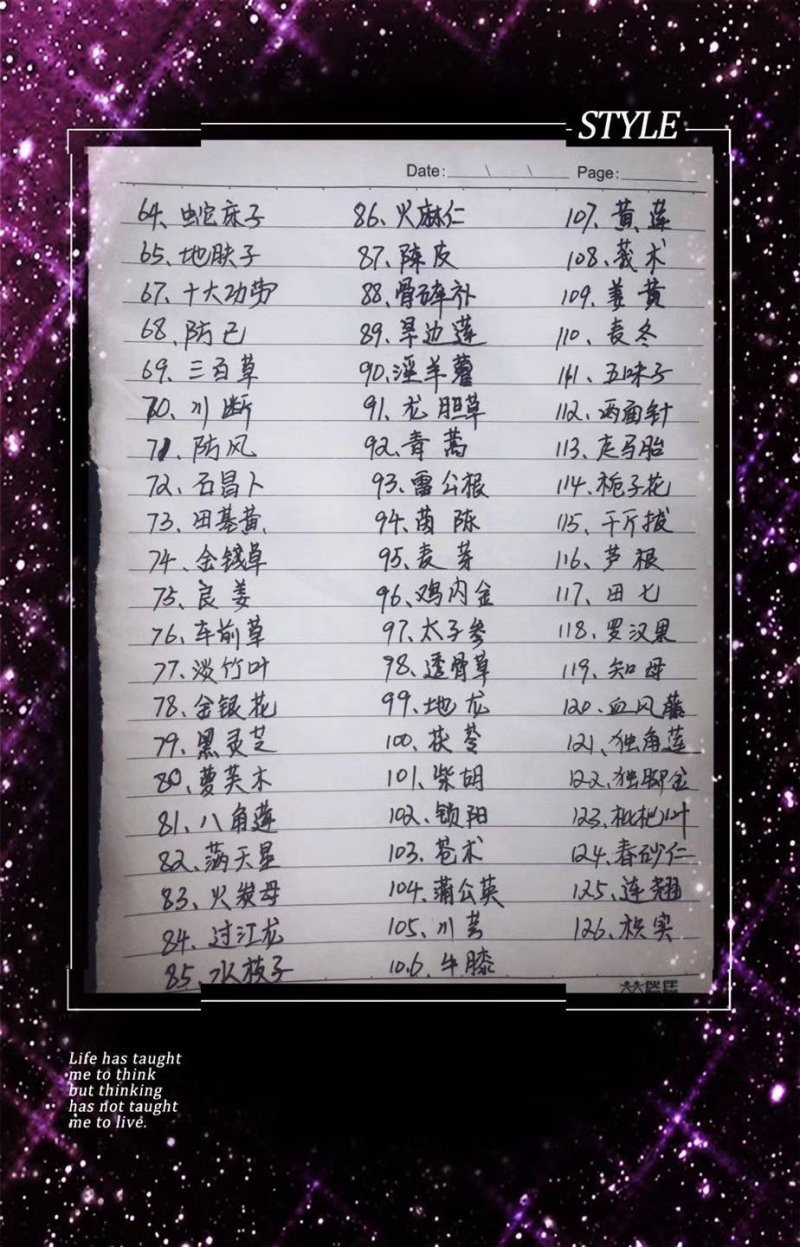 STYLE
Date: \ \ Page:
64、蛇床子
65、地肤子
67、十大功劳
68、防己
69、三百草
70、川断
71、防风
72、石昌卜
73、田基黄
74、金钱草
75、良姜
76、车前草
77、淡竹叶
78、金银花
79、黑灵芝
80、萝芙木
81、八角莲
82、满天星
83、火炭母
84、过江龙
85、水枝子
86、火麻仁
87、陈皮
88、骨碎补
89、旱边莲
90、淫羊藿
91、龙胆草
92、青蒿
93、雷公根
94、茵陈
95、麦芽
96、鸡内金
97、太子参
98、透骨草
99、地龙
100、茯苓
101、柴胡
102、锁阳
103、苍术
104、蒲公英
105、川芎
106、牛膝
107、黄莲
108、莪术
109、姜黄
110、麦冬
111、五味子
112、两面针
113、走马胎
114、栀子花
115、千斤拔
116、芦根
117、田七
118、罗汉果
119、知母
120、血风藤
121、独角莲
122、独脚金
123、枇杷叶
124、春砂仁
125、连翘
126、枳实
Life has taught
me to think
but thinking
has not taught
me to live.